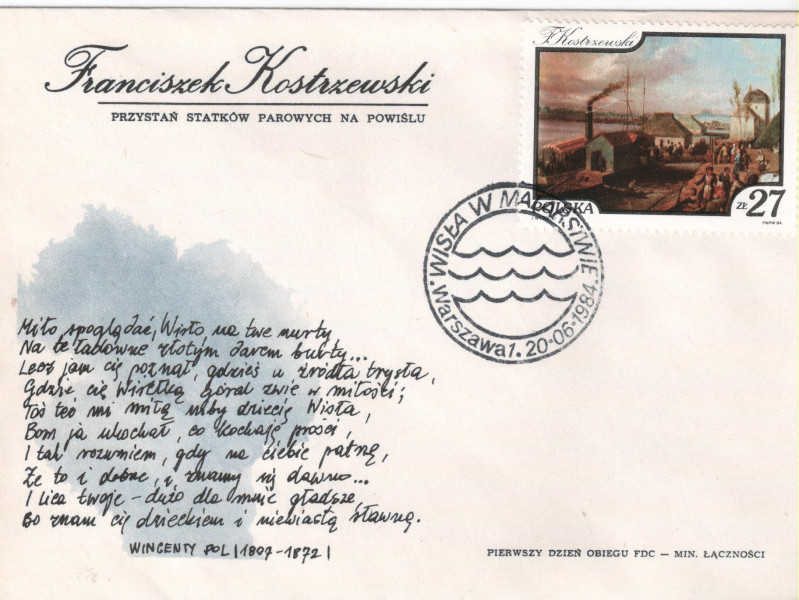 Franciszek Kostrzewski
PRZYSTAŃ STATKÓW PAROWYCH NA POWIŚLU
F. Kostrzewski
POLSKA
ZŁ 27
PWPW 84
WISŁA W MALARSTWIE
Warszawa 1. 20-06-1984.
Miło spoglądać, Wisło na twe nurty
Na te ładowne złotym darem burty...
Lecz jam cię poznał, gdzieś u źródła trysła,
Gdzie cię Wisełką góral zwie w miłości;
Toś też mi miłą niby dziecię Wisła,
Bom ja ukochał, co kochają prości,
I tak rozumiem, gdy na ciebie patrzę,
Że to i dobre, i znamy się dawno...
I lica twoje - dużo dla mnie gładsze,
Bo znam cię dzieckiem i niewiastą sławną.
WINCENTY POL /1807-1872/
PIERWSZY DZIEŃ OBIEGU FDC — MIN. ŁĄCZNOŚCI